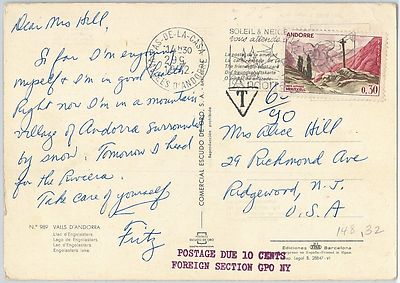 Dear Mrs Hill,
So far I'm enjoying
myself & I'm in good health.
Right now I'm in a mountain
village of Andorra surrounded
by snow. Tomorrow I head
for the Riviera.
Take care of yourself
Fritz
N.º 989 VALLS D'ANDORRA
Llac d'Engolasters
Lago de Engolasters
Lac d'Engolasters
Engolasters lake
COMERCIAL ESCUDO DE ORO, S.A.
Reproducción prohibida
PAS-DE-LA-CASA
VALLS D'ANDORRE
SOLEIL & NEIGE
vous attende
ANDORRE
0,30
T
Mrs Alise Hill
29 Richmond Ave
Ridgewood, N.J.
U.S.A
148,32
POSTAGE DUE 10 CENTS
FOREIGN SECTION GPO NY
Ediciones Barcelona